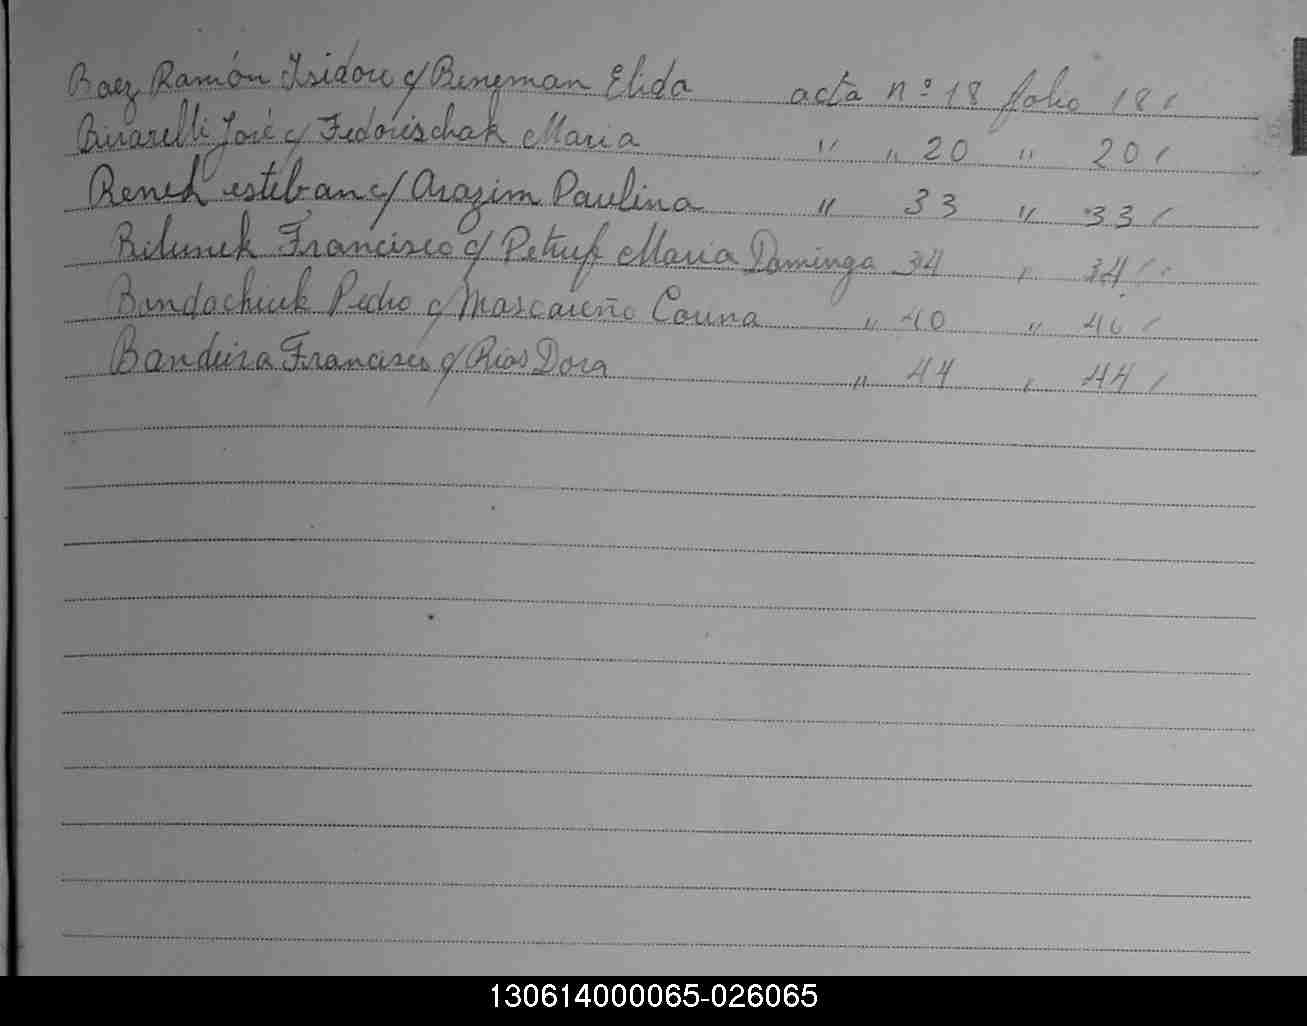 Baez Ramón Isidore c/ Bengman Elida acta nº 18 folio 18 /
Birarelli José c/ Fedorischak Maria " " 20 " 20 /
Benek esteban c/ Arazim Paulina " 33 " 33 /
Bilunek Francisco c/ Petruf Maria Daminga 34 " 34 /
Bondachiuk Pedro c/ Mascareño Corina " 40 " 40 /
Bandeira Francisco c/ Rios Dora " 44 " 44 /
130614000065-026065